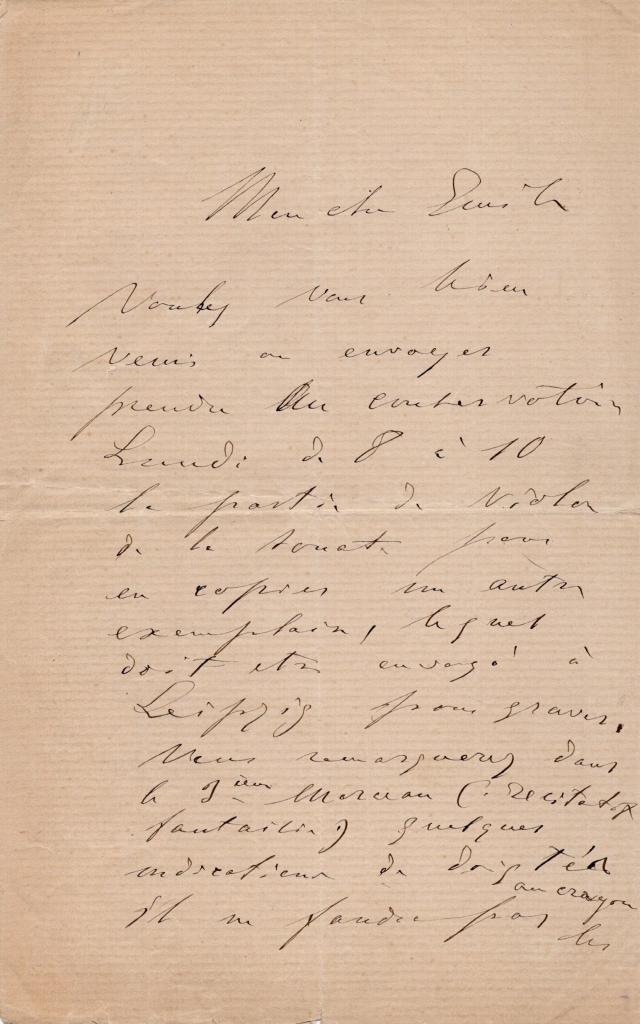 Mon cher Emile
Voulez vous bien
venir ou envoyer
prendre Au conservatoire
Lundi de 8 à 10
la partie de Violon
de la sonate pour
en copier un autre
exemplaire, lequel
doit etre envoyé à
Leipzig pour graver.
Vous remarquerez dans
le 3ieme Morceau (Recitatif
fantaisie) quelques
indications de doigtés
au crayon
il ne faudra pas les